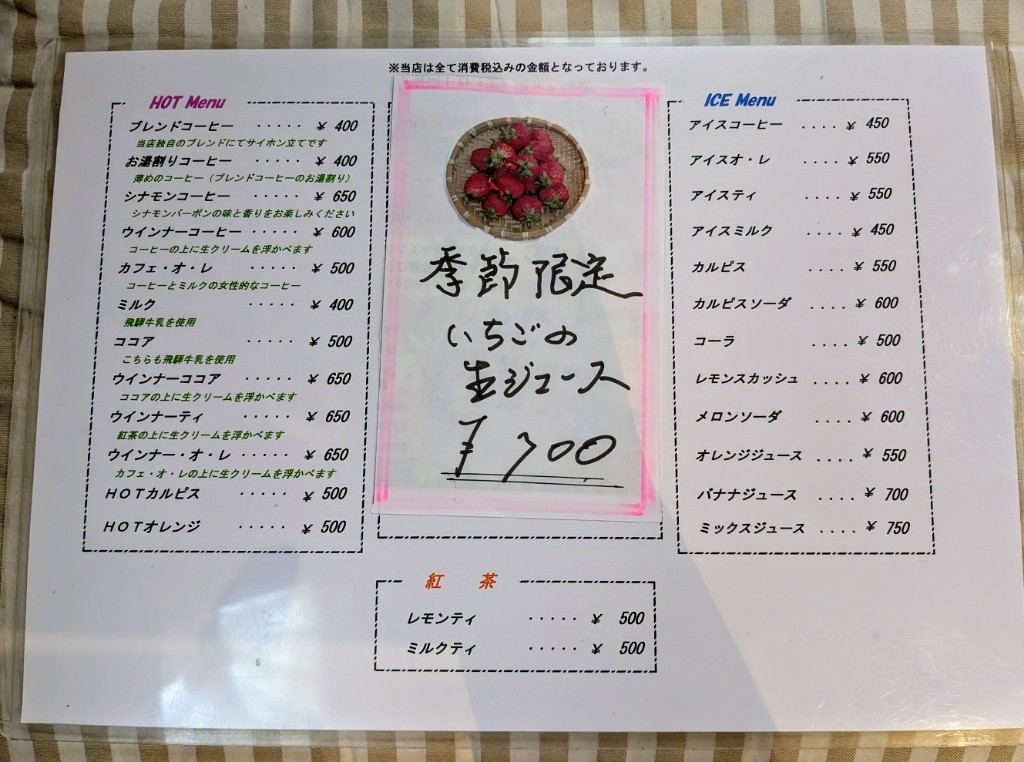 ※当店は全て消費税込みの金額となっております。
HOT Menu
ブレンドコーヒー ・・・・・ ￥ 400
当店独自のブレンドにてサイホン立てです
お湯割りコーヒー ・・・・・ ￥ 400
薄めのコーヒー（ブレンドコーヒーのお湯割り）
シナモンコーヒー ・・・・・ ￥ 650
シナモンバーボンの味と香りをお楽しみください
ウインナーコーヒー ・・・・・ ￥ 600
コーヒーの上に生クリームを浮かべます
カフェ・オ・レ ・・・・・ ￥ 500
コーヒーとミルクの女性的なコーヒー
ミルク ・・・・・ ￥ 400
飛騨牛乳を使用
ココア ・・・・・ ￥ 500
こちらも飛騨牛乳を使用
ウインナーココア ・・・・・ ￥ 650
ココアの上に生クリームを浮かべます
ウインナーティ ・・・・・ ￥ 650
紅茶の上に生クリームを浮かべます
ウインナー・オ・レ ・・・・・ ￥ 650
カフェ・オ・レの上に生クリームを浮かべます
ＨＯＴカルピス ・・・・・ ￥ 500
ＨＯＴオレンジ ・・・・・ ￥ 500
季節限定
いちごの
生ジュース
￥700
ICE Menu
アイスコーヒー .... ￥ 450
アイスオ・レ .... ￥ 550
アイスティ .... ￥ 550
アイスミルク .... ￥ 450
カルピス .... ￥ 550
カルピスソーダ .... ￥ 600
コーラ .... ￥ 500
レモンスカッシュ .... ￥ 600
メロンソーダ .... ￥ 600
オレンジジュース .... ￥ 550
バナナジュース .... ￥ 700
ミックスジュース .... ￥ 750
紅 茶
レモンティ ・・・・・ ￥ 500
ミルクティ ・・・・・ ￥ 500